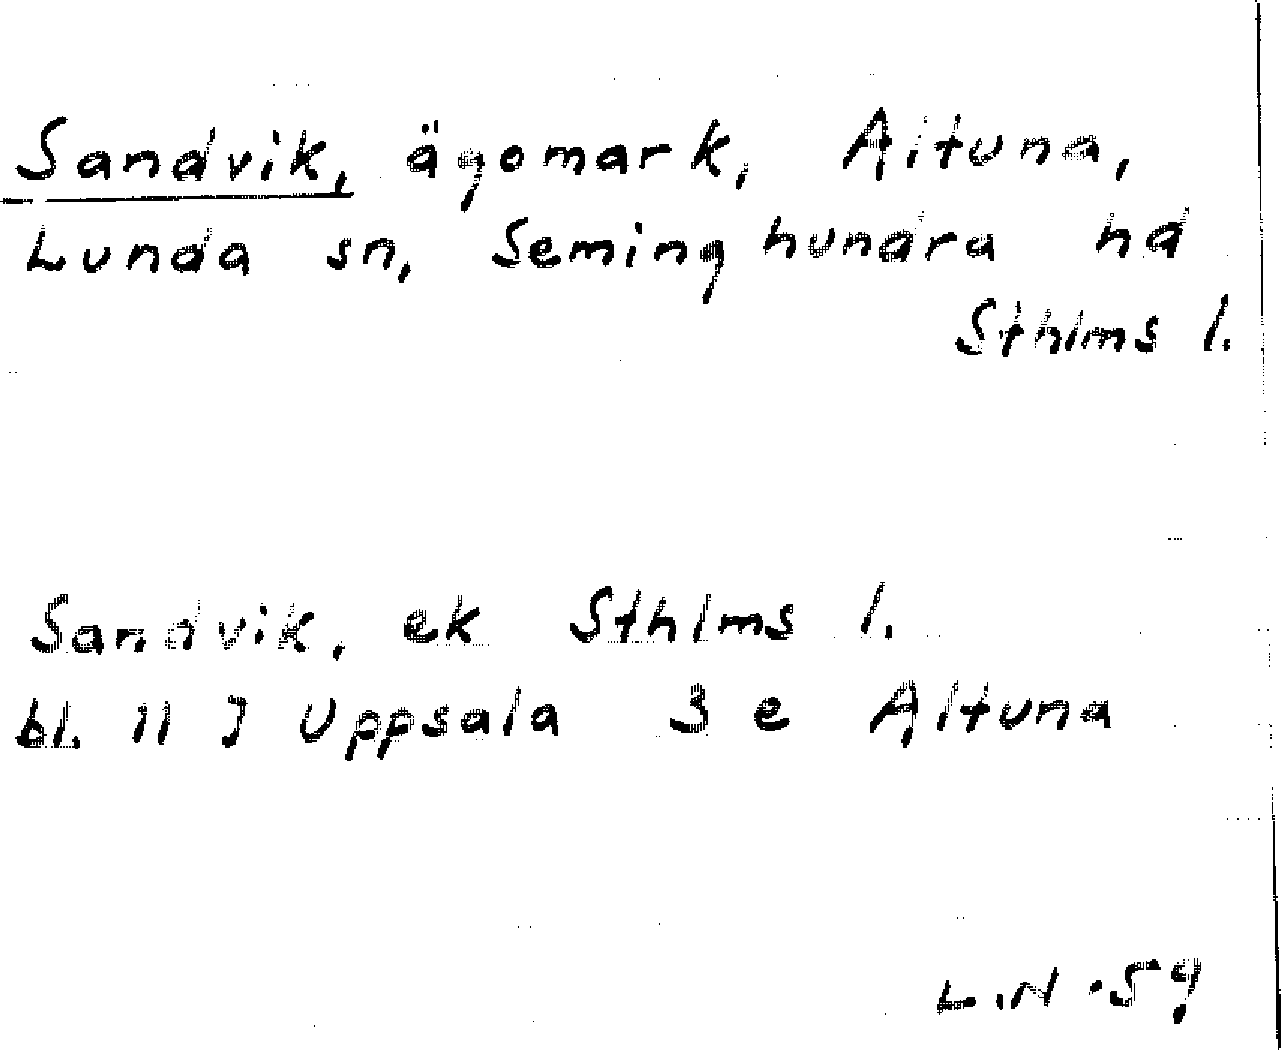 Sandvik, ägomark, Altuna,
Lunda sn, Seminghundra hd
Sthlms l.
Sandvik, ek Sthlms l.
bl. 11 J Uppsala 3 e Altuna
L.N. 59